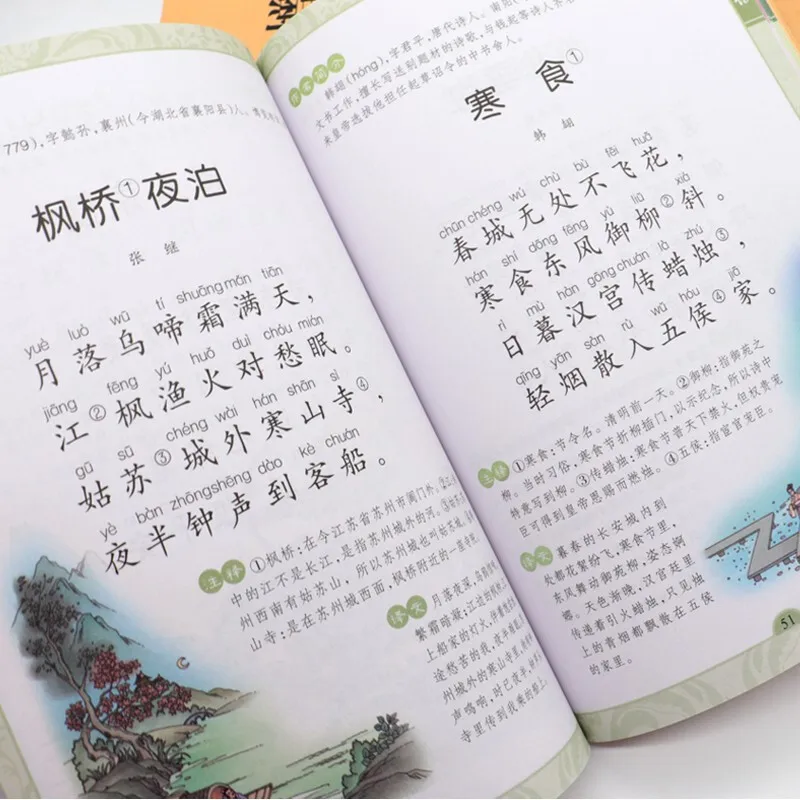 779），字懿孙，襄州（今湖北省襄阳县）人。
枫桥①夜泊
张 继
yuè luò wū tí shuāng mǎn tiān
月落乌啼霜满天，
jiāng fēng yú huǒ duì chóu mián
江②枫渔火对愁眠。
gū sū chéng wài hán shān sì
姑苏③城外寒山寺④，
yè bàn zhōng shēng dào kè chuán
夜半钟声到客船。
注释 ①枫桥：在今江苏省苏州市阊门外。②江：
中的江不是长江，是指苏州城外的河。③姑苏：
州西南有姑苏山，所以苏州城也叫姑苏城。
山寺：是在苏州城西面，枫桥附近的一座寺
译文 月落夜深，
繁霜暗凝；江边的枫
上船家的灯火，
途愁苦的我，夜
州城外的寒山寺里，
声鸣响，时已夜半，
寺里传到我乘的船上。
作者简介
韩翃(hóng)，字君平，唐代诗人。南阳
文书工作，擅长写送别题材的诗歌，与钱起等诗人齐
末皇帝选拔他担任起草诏令的中书舍人。
寒 食①
韩 翃
chūn chéng wú chù bù fēi huā
春城无处不飞花，
hán shí dōng fēng yù liǔ xiá
寒食东风御柳②斜。
rì mù hàn gōng chuán là zhú
日暮汉宫传蜡烛③，
qīng yān sàn rù wǔ hóu jiā
轻烟散入五侯④家。
注释 ①寒食：节令名。清明前一天。②御柳：指御苑之
柳。当时习俗，寒食节折柳插门，以示纪念，所以诗中
特意写到柳。③传蜡烛：寒食节普天下禁火，但权贵宠
臣可得到皇帝恩赐而燃烛。④五侯：指宦官宠臣。
译文 暮春的长安城内到
处都花絮纷飞，寒食节里，
东风舞动御苑柳，姿态婀
娜。天色渐晚，汉宫廷里
传递着引火蜡烛，只见烛
上的青烟都飘散在五侯
的家里。
51